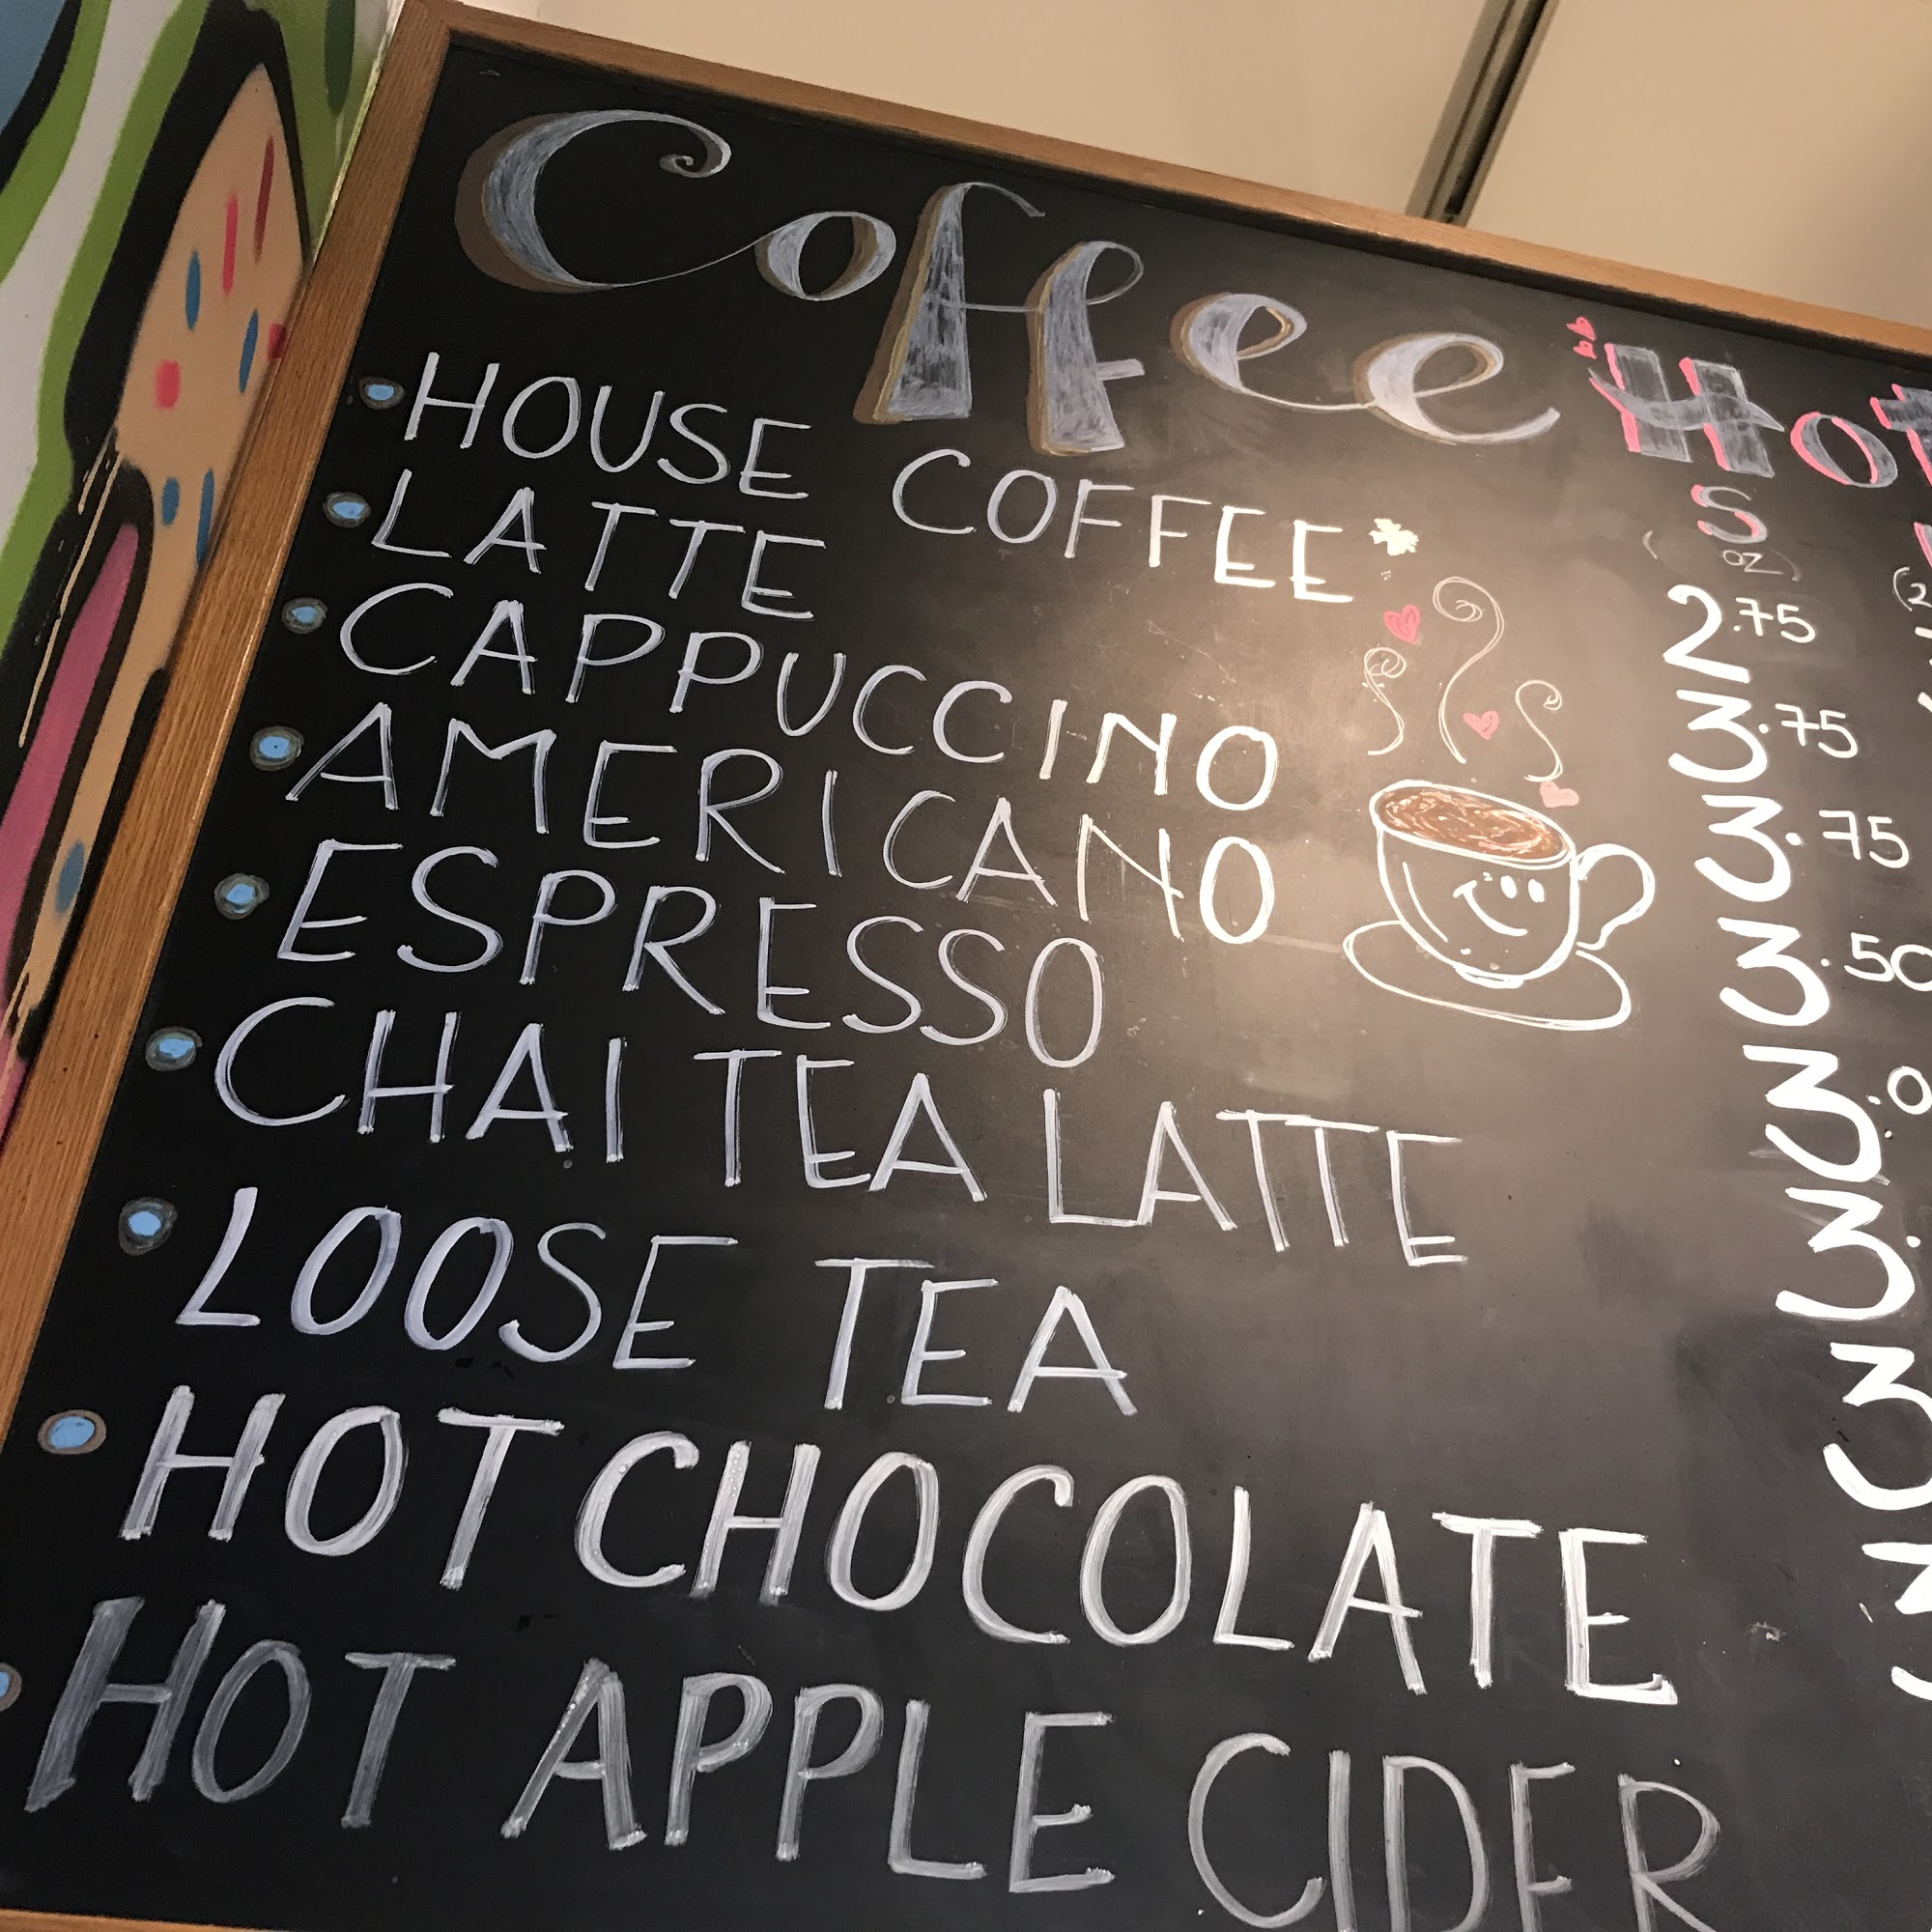 Coffee Hot
S
OZ
HOUSE COFFEE* 2.75
LATTE 3.75
CAPPUCCINO 3.75
AMERICANO 3.50
ESPRESSO
CHAI TEA LATTE
LOOSE TEA
HOT CHOCOLATE
HOT APPLE CIDER